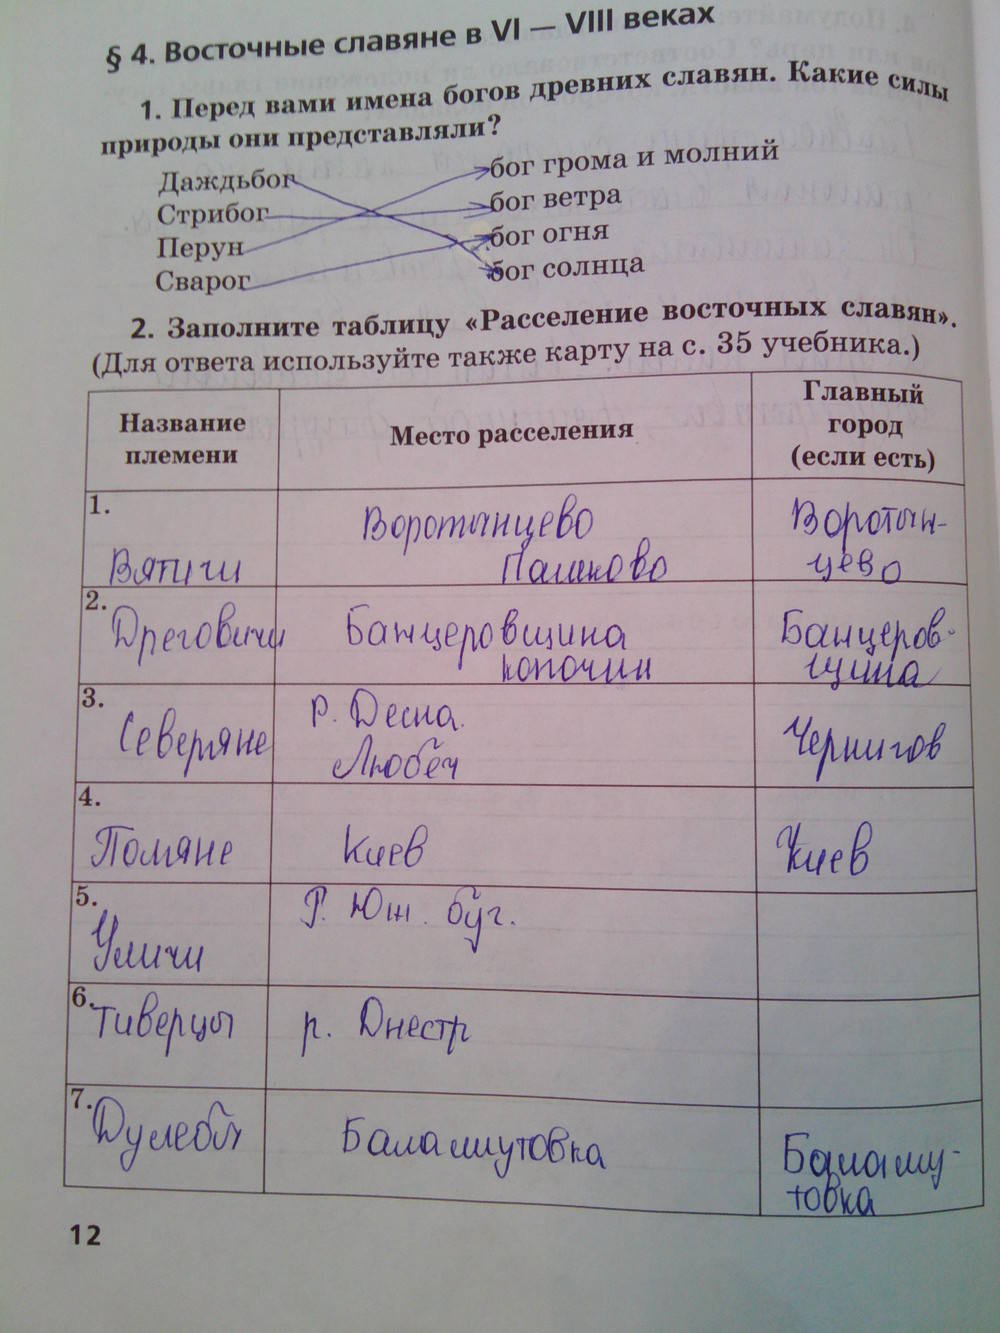 § 4. Восточные славяне в VI — VIII веках
1. Перед вами имена богов древних славян. Какие силы
природы они представляли?
Даждьбог бог грома и молний
Стрибог бог ветра
Перун бог огня
Сварог бог солнца
2. Заполните таблицу «Расселение восточных славян».
(Для ответа используйте также карту на с. 35 учебника.)
Название
племени
Место расселения
Главный
город
(если есть)
1.
Вятичи
Воротынцево
Пашково
Воротын-
цево
2.
Дреговичи
Банцеровщина
копочии
Банцеров-
щина
3.
Северяне
р. Десна.
Любеч
Чернигов
4.
Поляне
Киев
Киев
5.
Уличи
Р. Юж. буг.
6.
Тиверцы
р. Днестр
7.
Дулебы
Балашутовка
Балашу-
товка
12